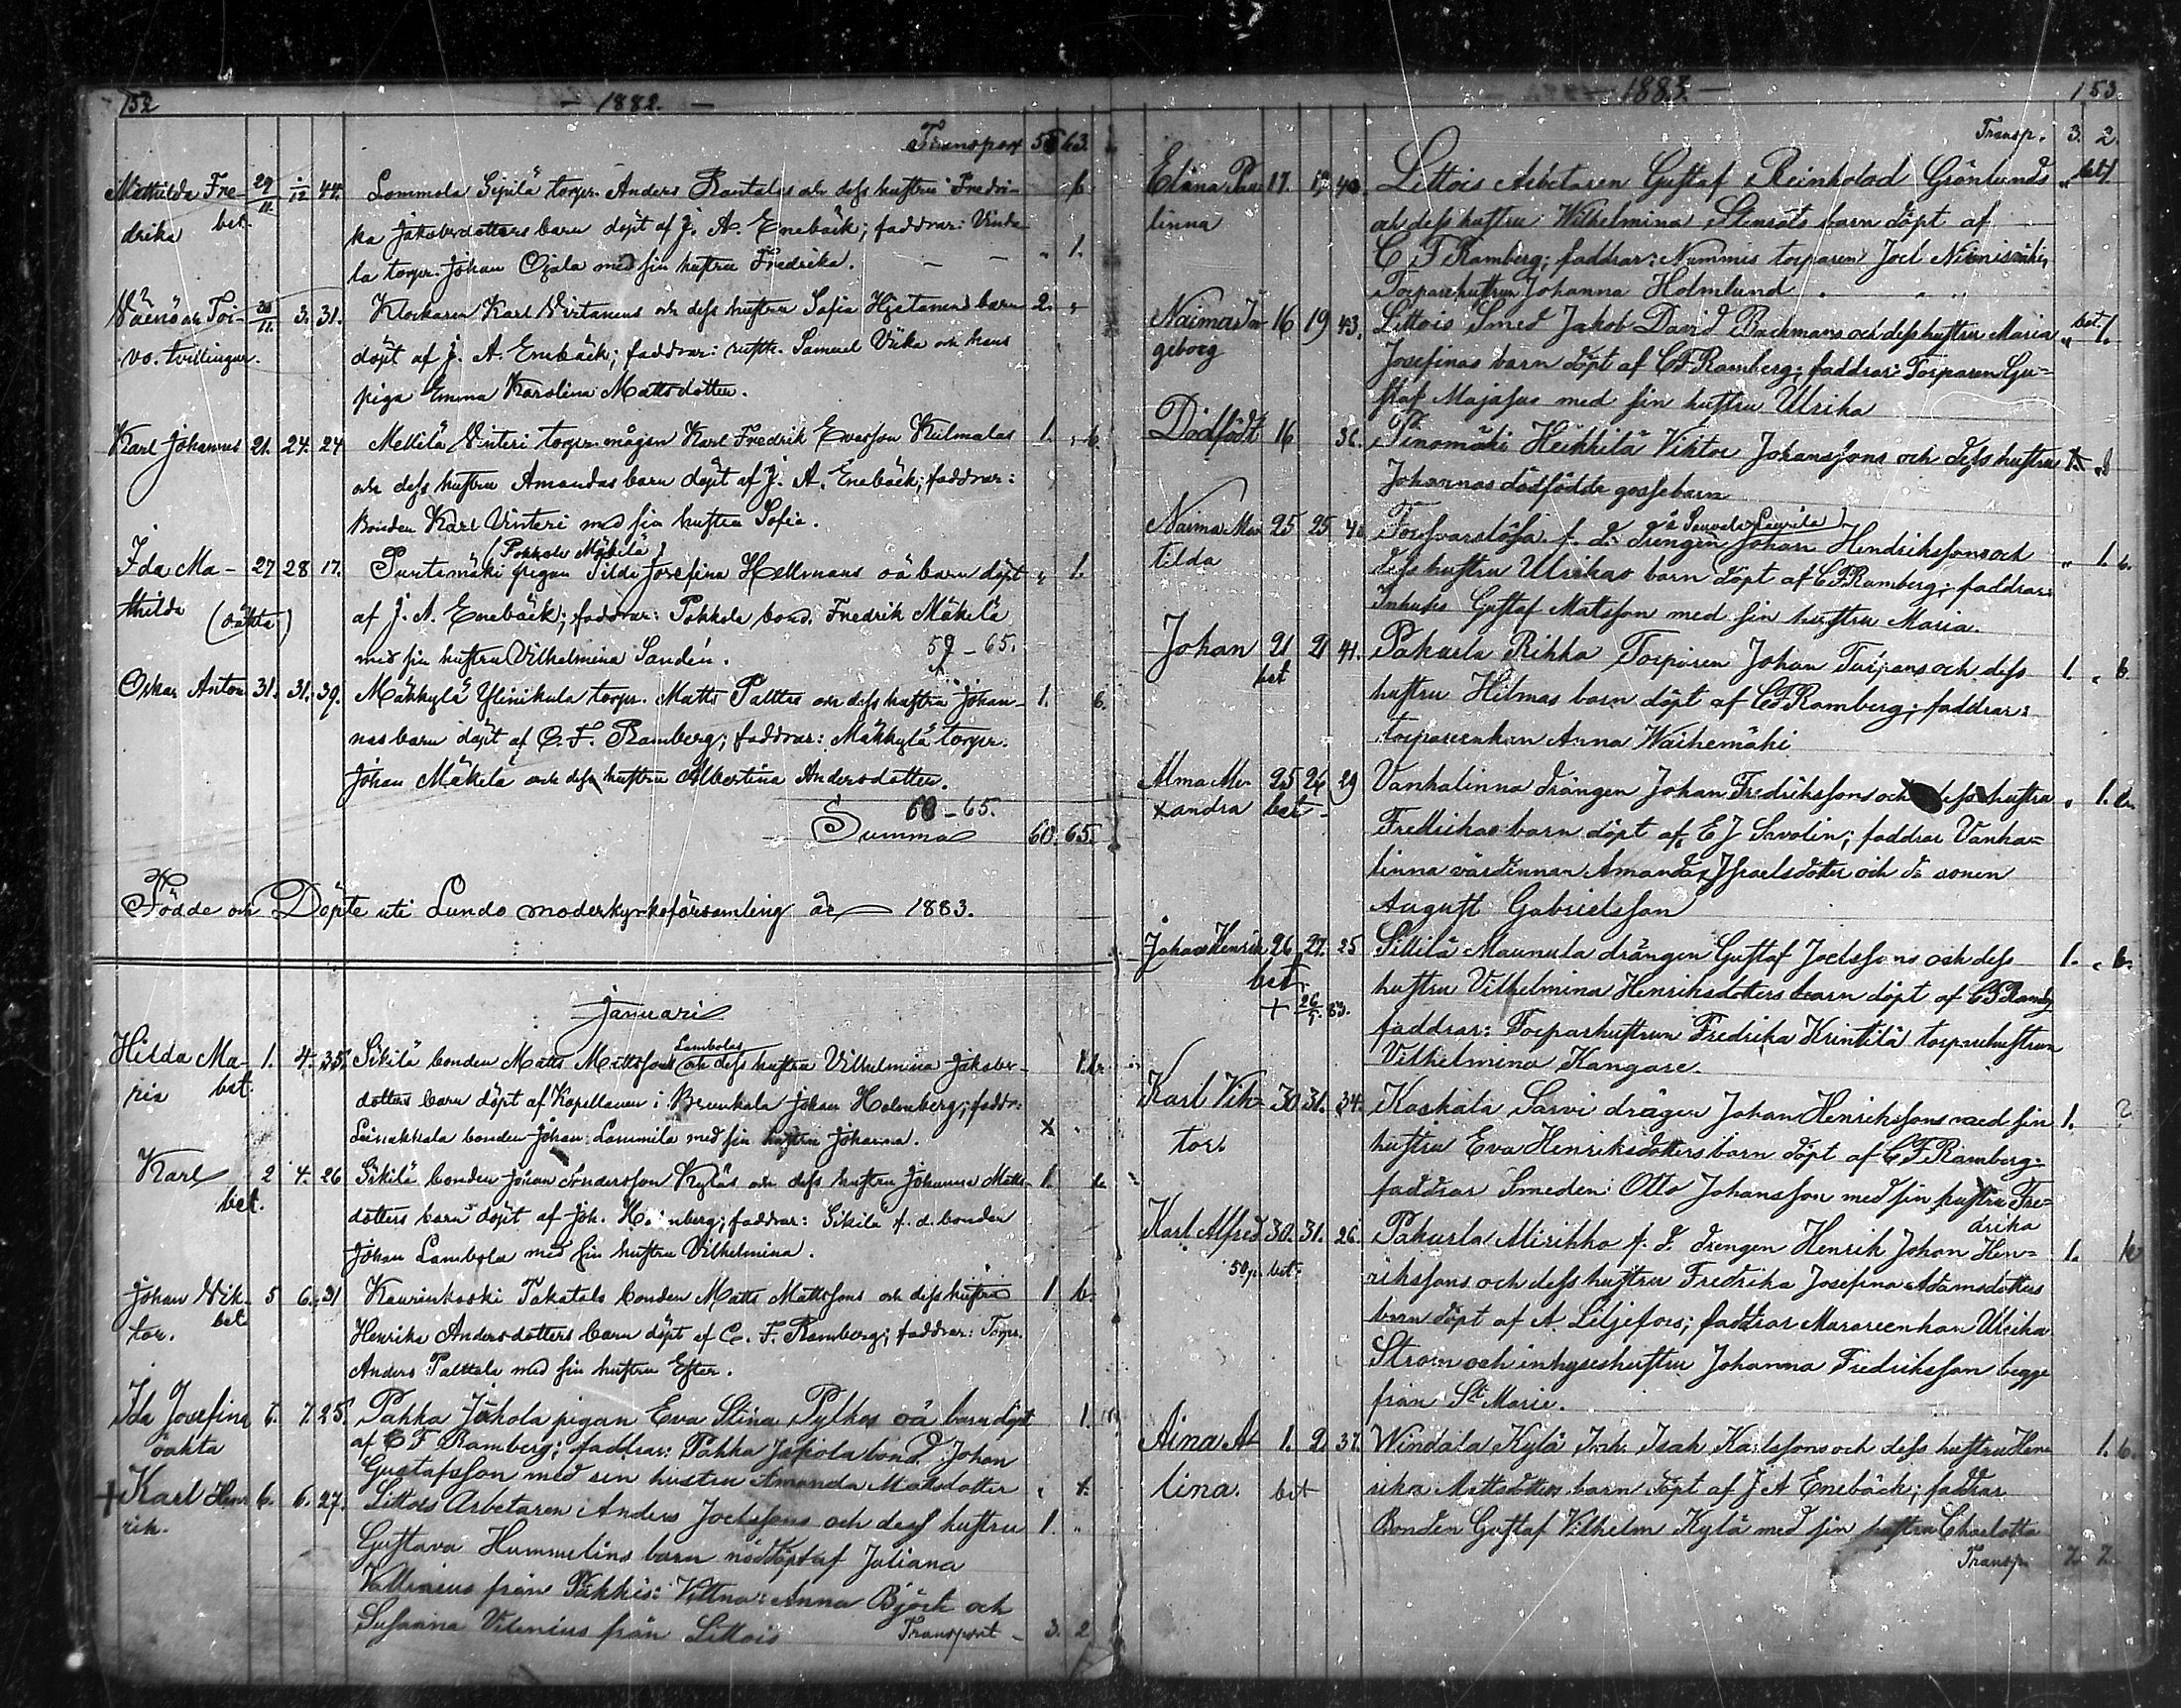 152 - 1882. -
Transport 58 63.
Mathilda Fre- 29/11 1/12 44. Lommola Sipilä torpr. Anders Rantalas och dess hustru Fredri- b.
drika bet. ka Jakobsdotters barn döpt af J. A. Enebäck; faddrar: Vinda-
la torpr. Johan Ojala med sin hustru Fredrika. - - " 1.
Väinö och Toi- 30/11. 3. 31. Klockaren Karl Virtanens och dess hustru Sofia barn 2. "
vo. tvillingar. döpt af J. A. Enebäck; faddrar: Samuel och hans
piga Emma Karolina Mattsdotter.
Karl Johannes 21. 24. 24 Mellilä Vinteri torpr. mågen Karl Fredrik Kulmalas 1. " b.
och dess hustru Amandas barn döpt af J. A. Enebäck; faddrar:
Bonden Karl Vinteri med sin hustru Sofia.
(Pokkola Mäkelä)
Ida Ma- 27 28 17. Puntamäki pigan Tilda Josefina Hellmans oä barn döpt " 1.
thilda (oäkta) af J. A. Enebäck; faddrar: Pokkola bond. Fredrik Mäkelä
med sin hustru Vilhelmina Sandén. 59 - 65.
Oskar Anton 31. 31. 39. Mäkkylä Ylinikula torpr. Matts Palttas och dess hustru Johan- 1. b.
nas barn döpt af C. F. Ramberg; faddrar: Mäkkylä torpr.
Johan Mäkelä och dess hustru Albertina Andersdotter.
60 - 65.
Summa 60. 65.
Födde och Döpte uti Lundo moderkyrkoförsamling år 1883.
Januari
Lambolas
Hilda Ma- 1. 4. 35. Sikilä bonden Matts Mattssons och dess hustru Vilhelmina Jakobs- 1. b.
ria bet. dotters barn döpt af Kapellanen i Brunkala Johan Holmberg; faddr:
Leinakkala bonden Johan Lammila med sin hustru Johanna. x
Karl 2 4. 26 Sikilä bonden Johan Anderssson Kyläs och dess hustru Johanna Matts- 1. b.
bet. dotters barn döpt af Joh. Holmberg; faddrar: Sikilä f. d. bonden
Johan Lambola med sin hustru Vilhelmina.
Johan Vik- 5 6. 31 Kaurinkoski Takatalo bonden Matts Mattssons och dess hustru 1 b.
tor. bet Henrika Andersdotters barn döpt af C. F. Ramberg; faddrar: Torpr.
Anders Palttala med sin hustru Ester.
Ida Josefina 6. 7. 25. Pahka Jakola pigan Eva Stina Pylkes oä barn döpt 1.
oäkta af C F Ramberg; faddrar: Pahka Jakola bond. Johan
Gustafsson med sin hustru Amanda Mattsdotter " 1.
+ Karl Hen- 6. 6. 27. Littois Arbetaren Anders Joelssons och dess hustru 1. "
rik. Gustava Hummelins barn nöddöpt af Juliana
Vallenius från Pikkis: Vittna: Anna Björk och
Susanna Vilenius från Littois Transport - 3. 2
- 1883. - 153
Transp. 3. 2.
Elina Pau 17. 40. Littois Arbetaren Gustaf Reinhold Grönlunds " bet 1.
linna och dess hustru Wilhelmina Stensats barn döpt af
C F Ramberg; faddrar: Nummis torparen Joel
Torparehustrun Johanna Holmlund.
Naima In- 16 19 43. Littois Smed Jakob David Backmans och dess hustru Maria " bet. 1.
geborg Josefinas barn döpt af C F Ramberg; faddrar: Torparen Gu-
staf Majasus med sin hustru Ulrika
Dödfödt 16 36. Tenomäki Heikkilä Viktor Johanssons och dess hustru
Johannas dödfödde gossebarn
Naima Ma- 25 25 40 Försvarslösa f. d. drengen Johan Hendrikssons och " 1. b.
tilda dess hustru Ulrikas barn döpt af C F Ramberg; faddrar:
Inhyses Gustaf Matsson med sin hustru Maria.
Johan 21 21 41. Pakurla Rikka Torparen Johan Turpans och dess 1. " b.
bet hustru Hilmas barn döpt af C F Ramberg; faddrar:
torpareenkan Anna Waihemäki
Alma Ale- 25 26 29 Vanhalinna drängen Johan Fredrikssons och dess hustru " 1. b.
xandra bet - Fredrikas barn döpt af E J Savolin; faddrar Vanha-
linna värdinnan Amanda Israelsdotter och d:o sonen
August Gabrielsson
Johan Henrik 26 27. 25 Sillilä Maunula drängen Gustaf Joelssons och dess 1. " b.
bet. hustru Vilhelmina Henriksdotters barn döpt af C F Ramberg
+ 26/5. 83. faddrar: Torparhustrun Fredrika Krintilä torparehustrun
Vilhelmina Kangare.
Karl Vik- 30 31. 34. Koskala Sarvi drägen Johan Henrikssons med sin 1. ?
tor. hustru Eva Henriksdotters barn döpt af C F Ramberg.
faddrar Smeden: Otto Johansson med sin hustru Fre-
drika
Karl Alfred 30. 31. 26. Pakurla Mirikka f. d. drengen Henrik Johan Hen- 1. b
50 p. bet. rikssons och dess hustru Fredrika Josefina Adamsdotters
barn döpt af A. Liljefors; faddrar Murareenkan Ulrika
Strom och inhyseshustru Johanna Fredriksson begge
från S:t Marie.
Aina A- 1. 2. 37. Windala Kylä Inh. Isak Karlssons och dess hustru Hen- 1. b.
lina. bet rika Mattsdotters barn döpt af J A Enebäck; faddrar
Bonden Gustaf Vilhelm Kylä med sin hustru Charlotta
Transp. 7. 7.